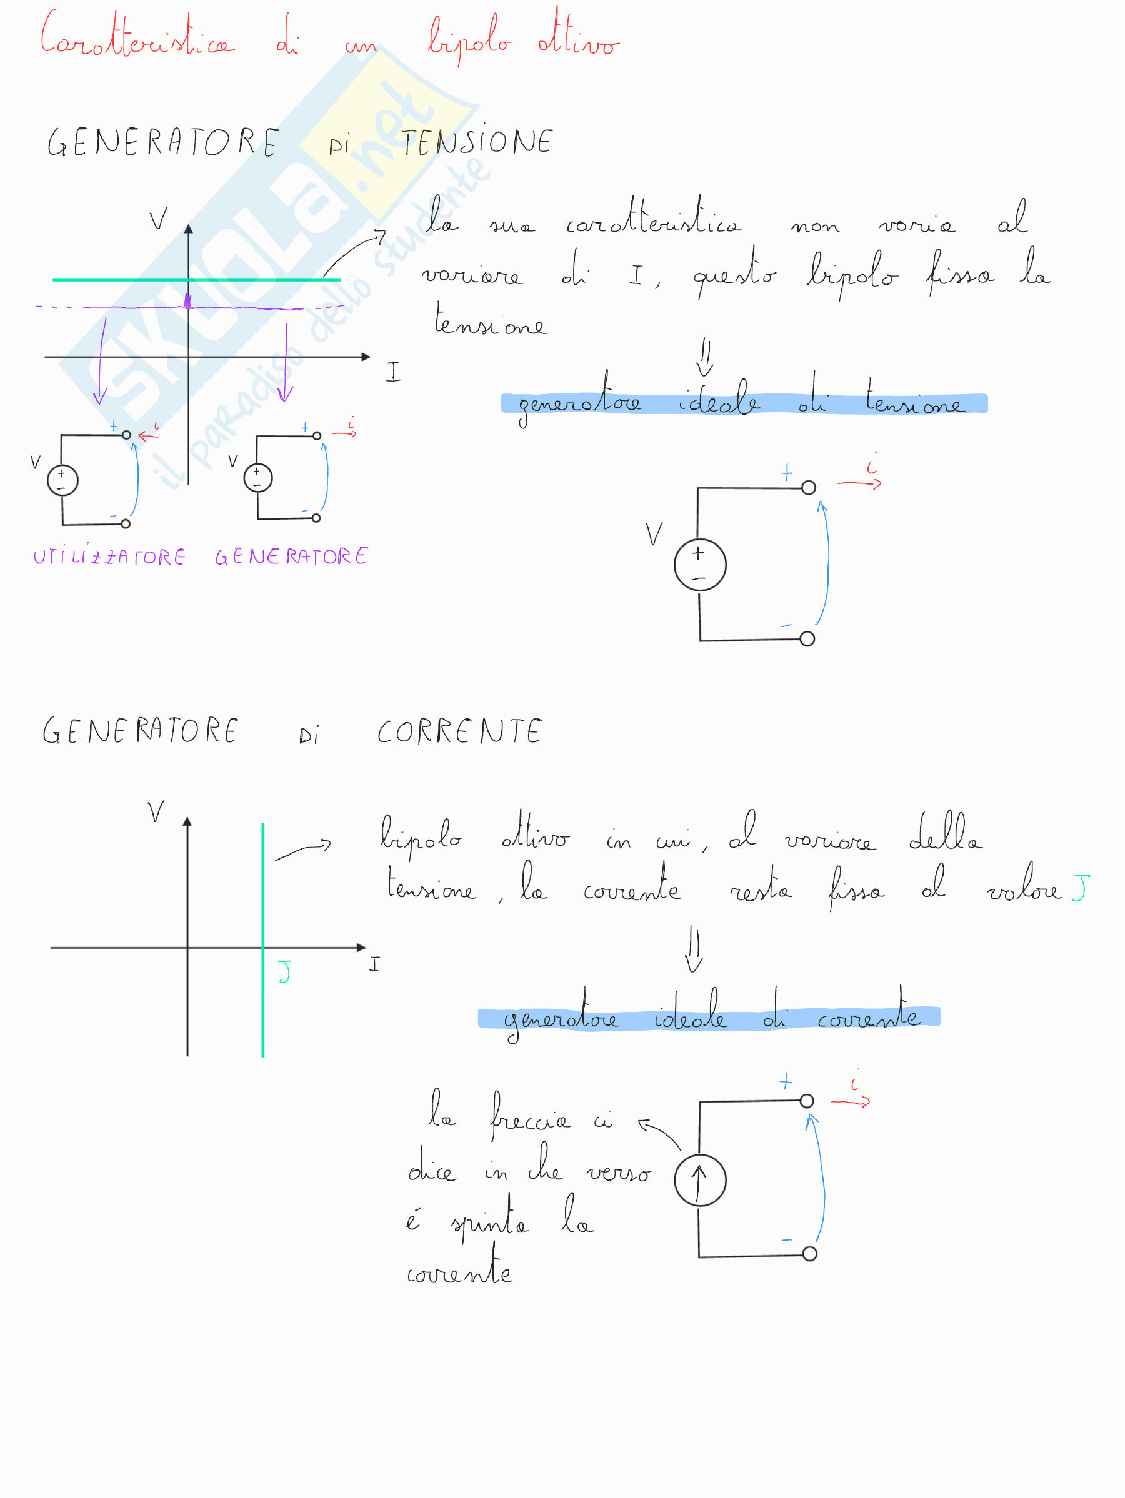 Caratteristica di un bipolo attivo
GENERATORE Di TENSiONE
V
la sua caratteristica non varia al
variare di I, questo bipolo fissa la
tensione
⇓
I
generatore ideale di tensione
+ i
V + -
-
+ i
V + -
-
UTiLiZZATORE GENERATORE
+ i
V + -
-
GENERATORE Di CORRENTE
V
bipolo attivo in cui, al variare della
tensione, la corrente resta fissa al valore J
⇓
J I
generatore ideale di corrente
+ i
la freccia ci
dice in che verso
é spinta la
corrente
-
SKUOLA.net
il paradiso dello studente